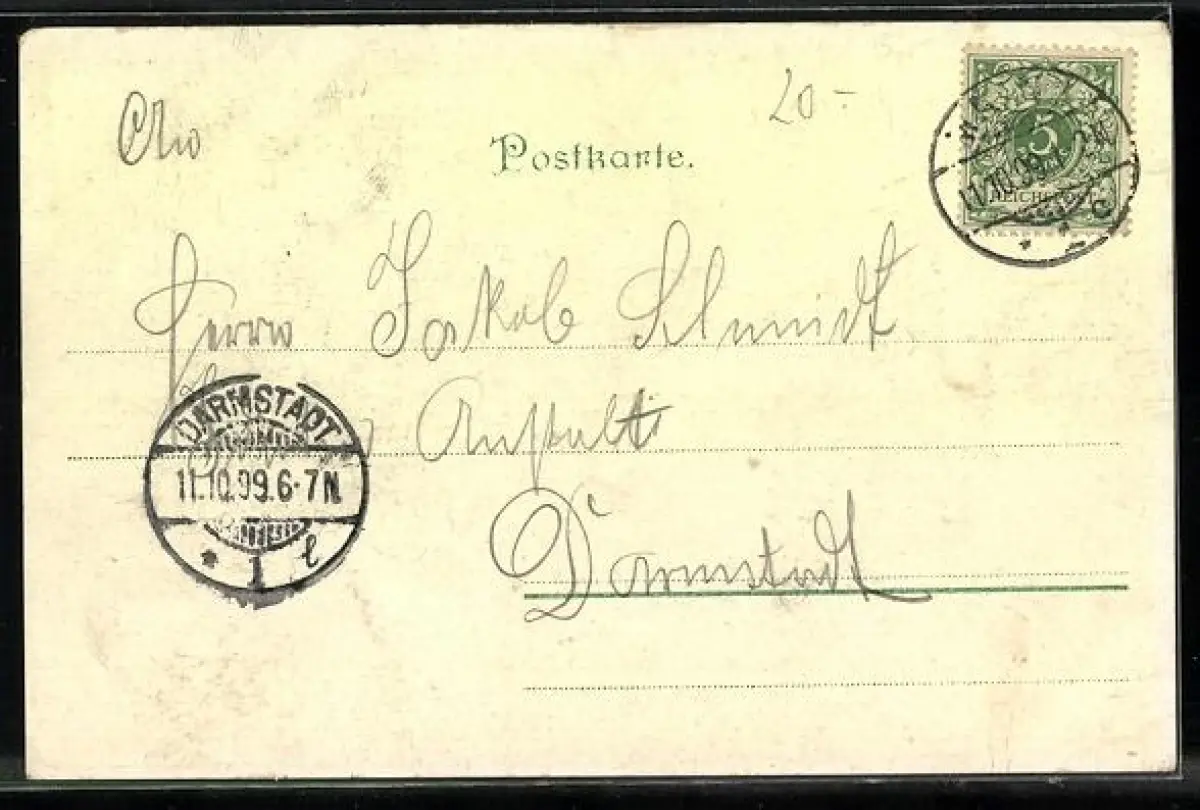 20-
Postkarte.
5
11.10.99.
REICHSPOST
c
Herrn Jakob Schmidt
Anstalt
Darmstadt
DARMSTADT
11.10.99.6-7N
* 1 l